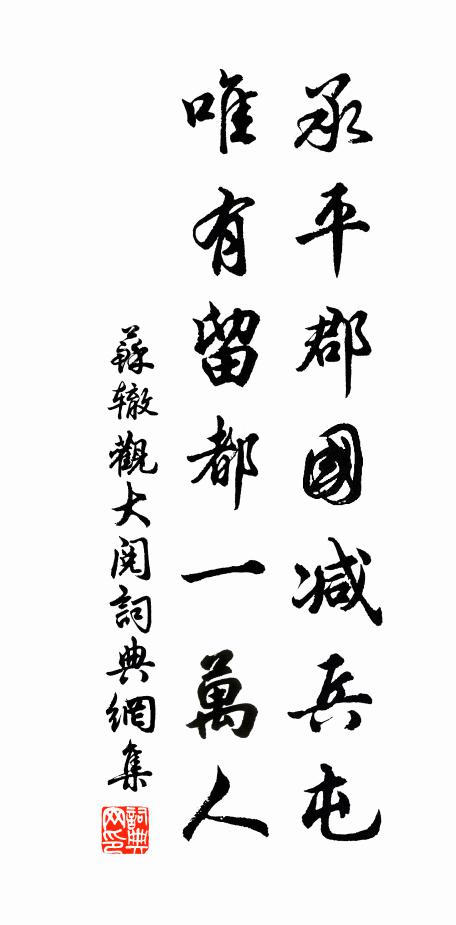 承平郡國減兵屯
唯有留都一萬人
蘇轍觀大閱詞典網集
詞典网印